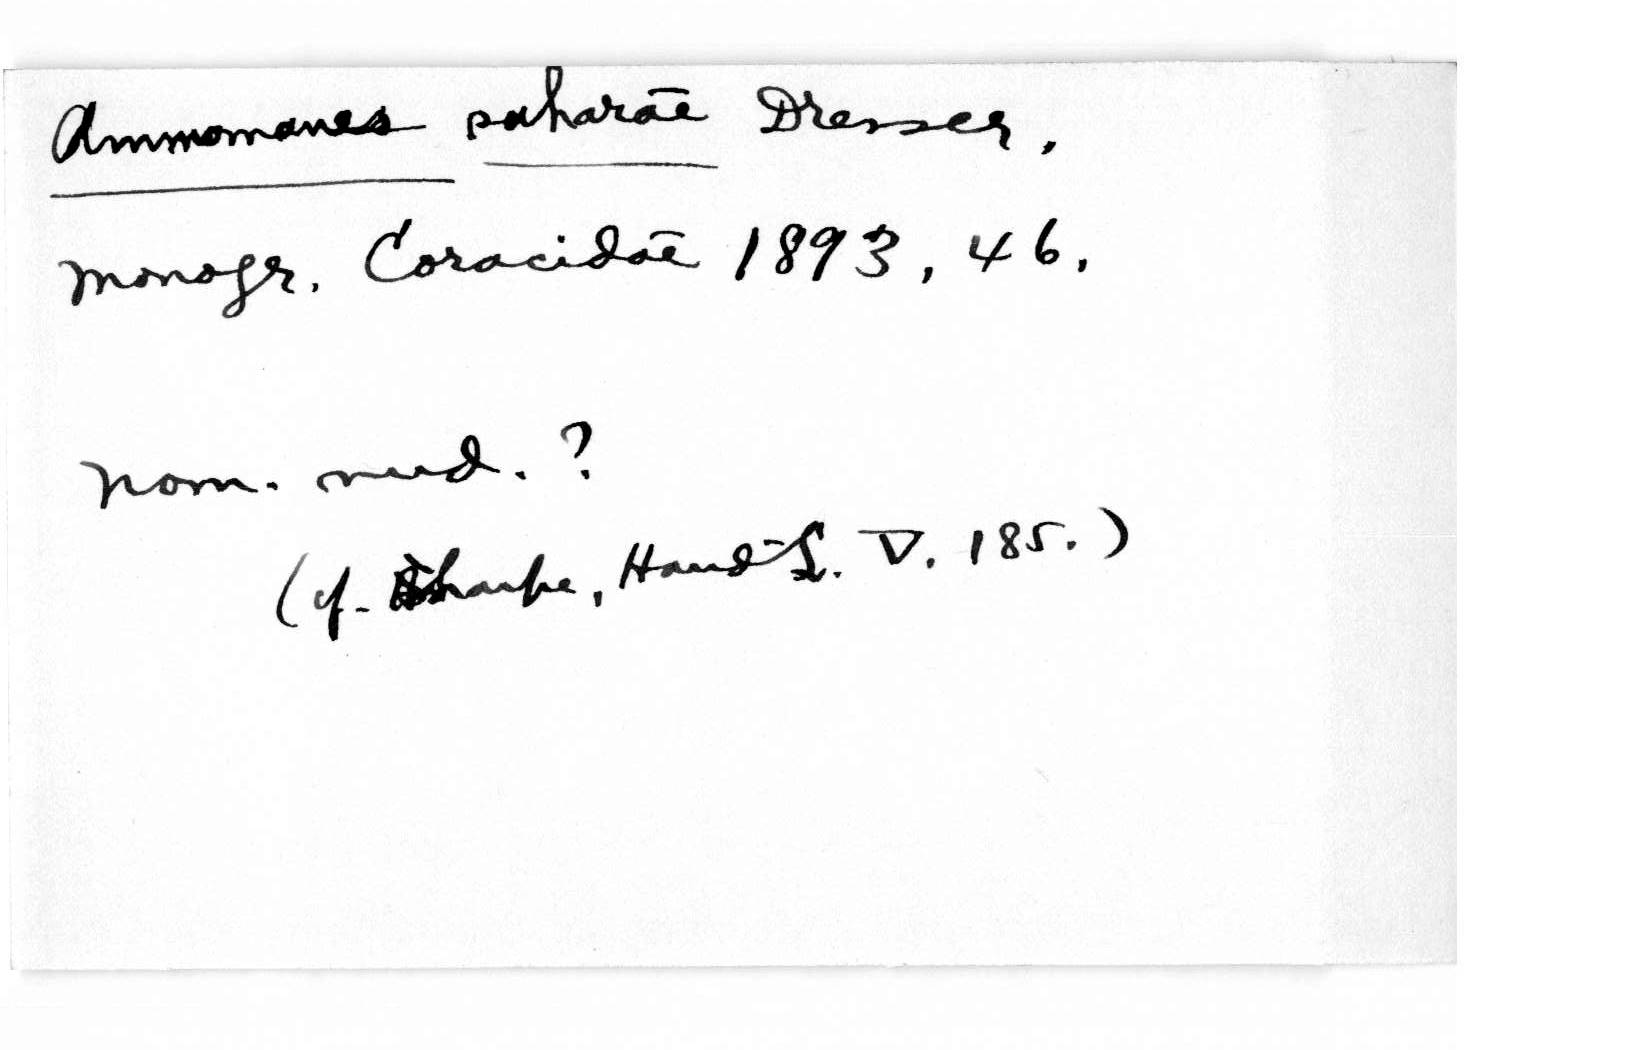 Ammomanes saharae Dresser,
Monogr. Coracidae 1893, 46,
nom. nud. ?
(cf. Sharpe, Hand-L. V. 185.)